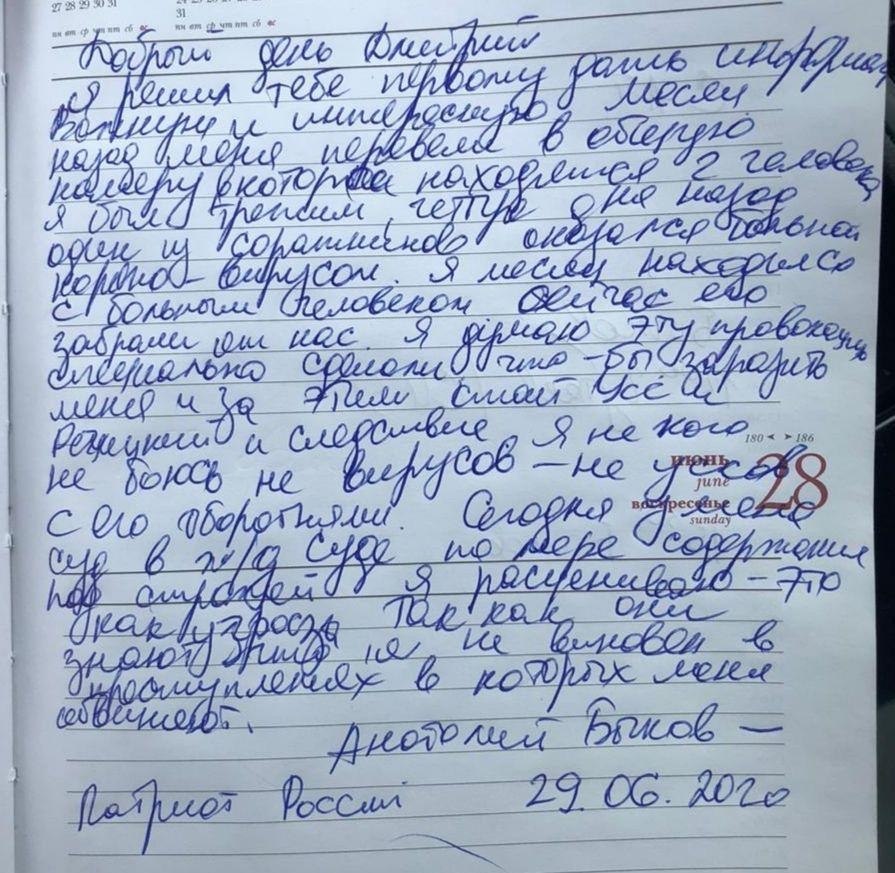 27 28 29 30 31
31
пн вт ср чт пт сб вс
пн вт ср чт пт сб вс
Добрый день Дмитрий
я решил тебе первому дать
важную и интересную месяц
назад меня перевели в общую
камеру в которой находятся 2 человека
я был третьим, дня назад
один из соратников оказался больной
корона-вирусом. Я месяц находился
с больным человеком сейчас его
забрали от нас. Я думаю эту провокацию
специально сделали что-бы заразить
меня и за этим стоит Усс и
и следствие. Я не кого
180 ◄ ► 186
не боюсь не вирусов-не уссов
июнь
june
28
с его оборотнями. Сегодня у меня
воскресенье
sunday
суд в ж/д суде по мере содержания
под стражей я расцениваю-это
как угроза так как они
знают что я не виновен в
преступлениях в которых меня
обвиняют.
Анатолий Быков-
Патриот России 29.06.2020